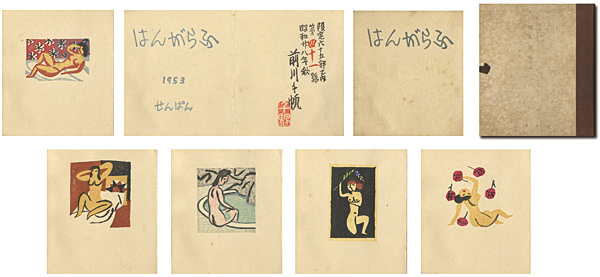 はんがらふ
1953
せんぱん
限定六十五部之内
第四十一號
昭和廿八年秋
前川千帆
はんがらふ